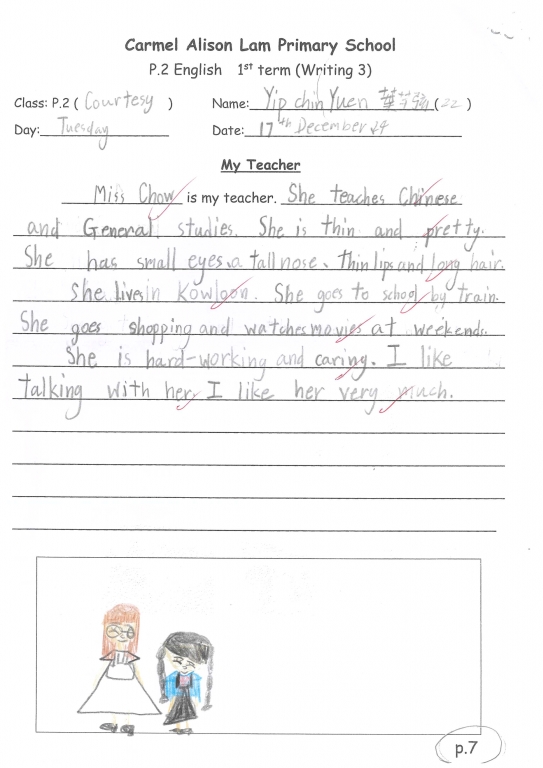 Carmel Alison Lam Primary School
P.2 English 1st term (Writing 3)
Class: P.2 ( Courtesy ) Name: Yip chin Yuen (22)
Day: Tuesday Date: 17th December 24
My Teacher
Miss Chow is my teacher. She teaches Chinese
and General studies. She is thin and pretty.
She has small eyes, a tall nose, Thin lips and long hair.
She lives in Kowloon. She goes to school by train.
She goes shopping and watches movies at weekends.
She is hard-working and caring. I like
talking with her. I like her very much.
p.7